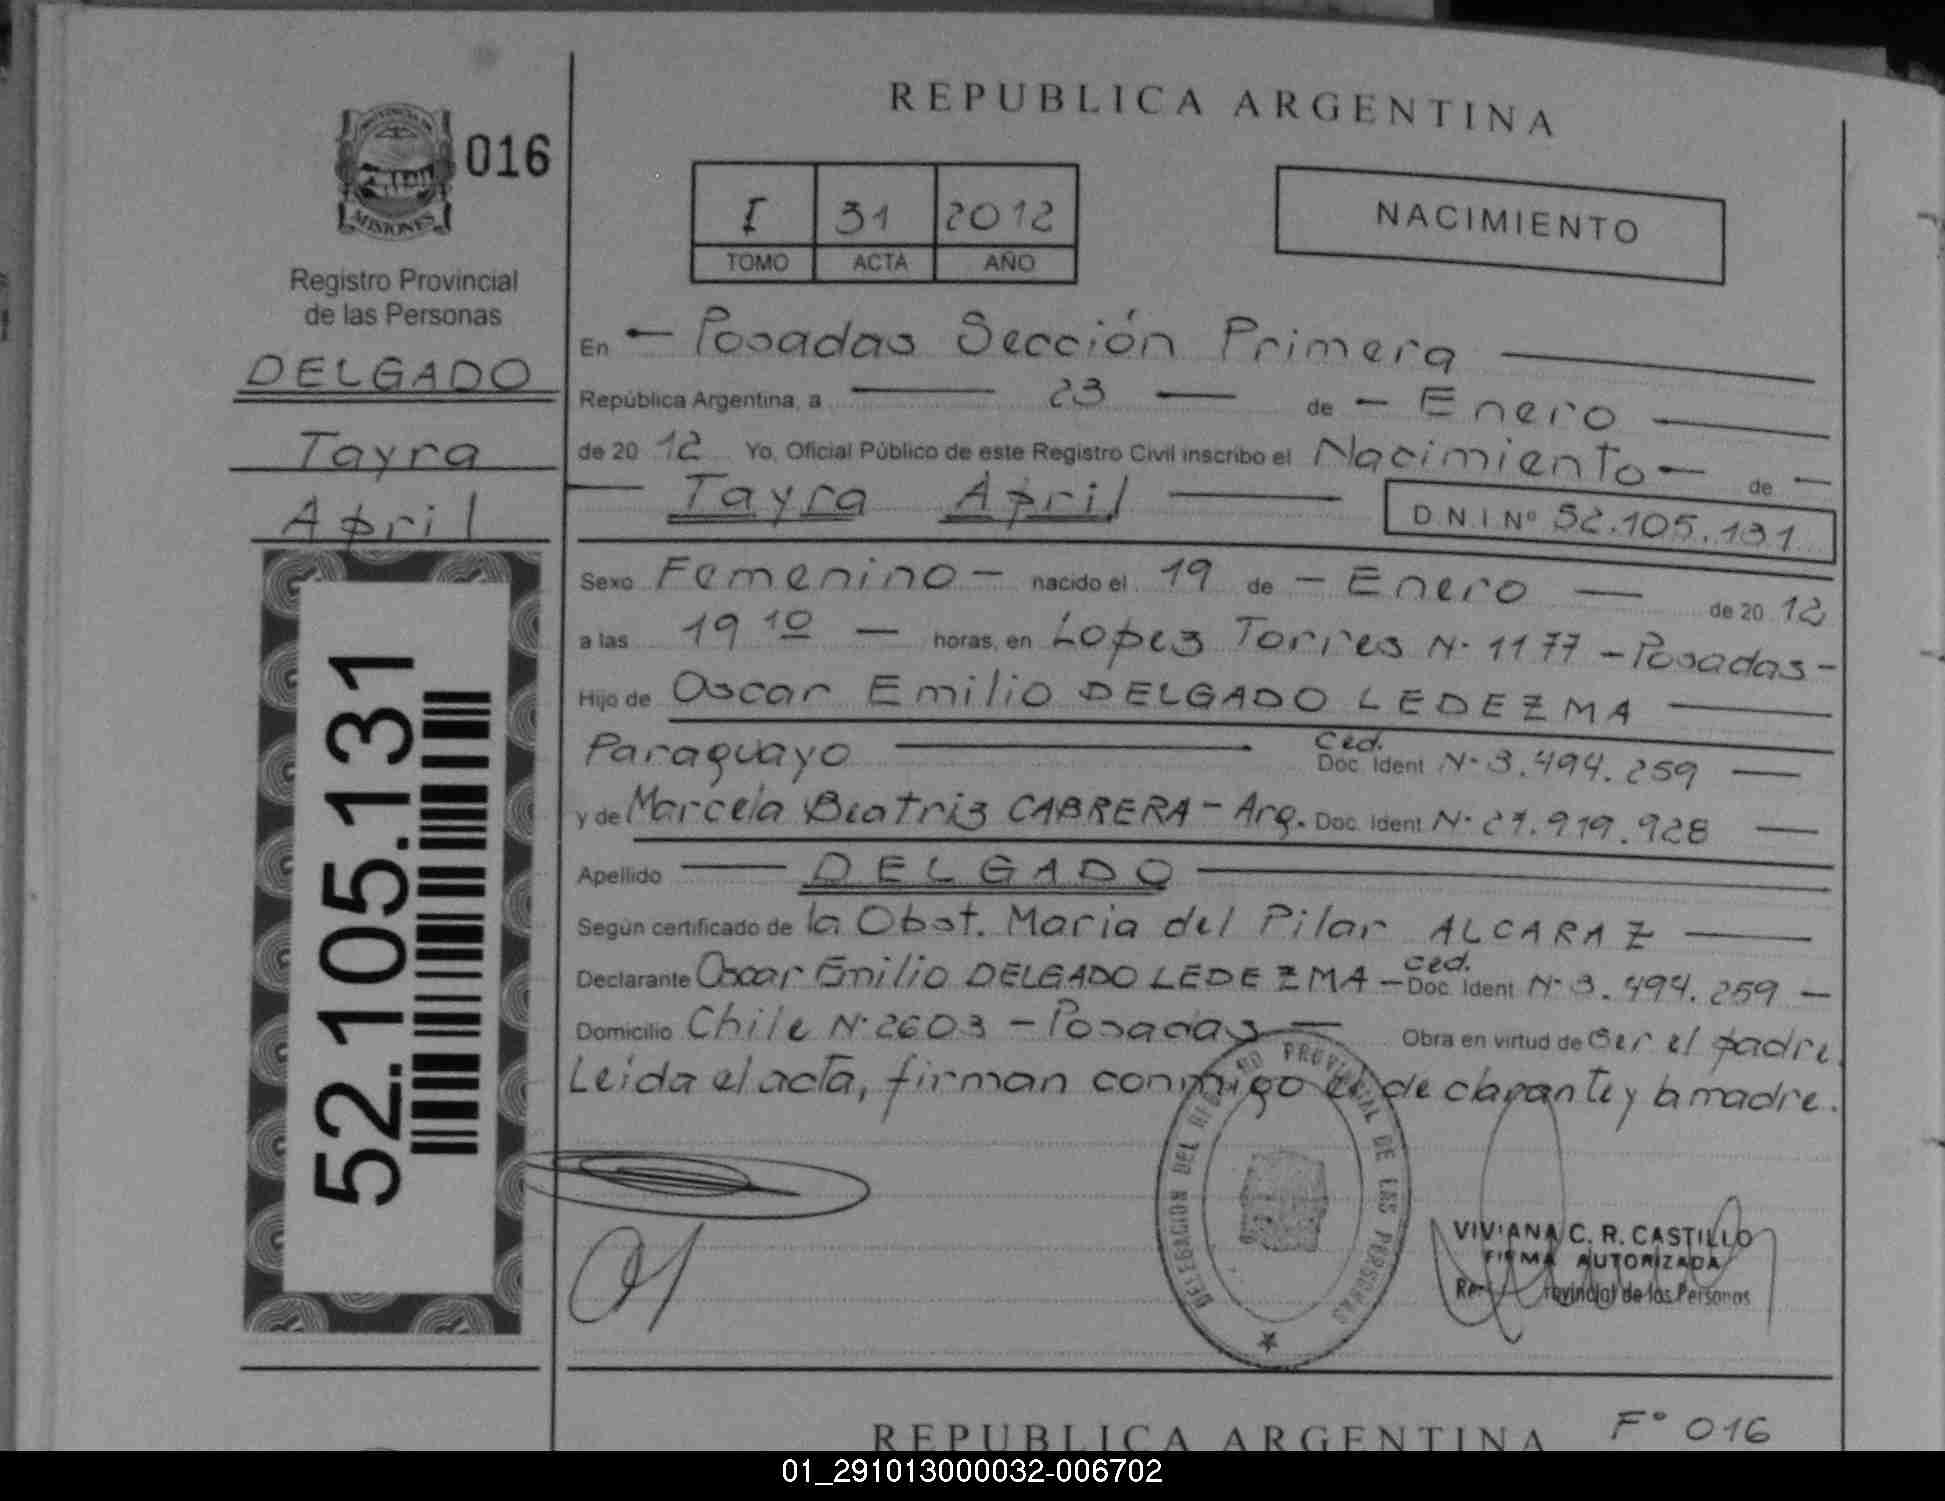 REPUBLICA ARGENTINA
016
MISIONES
Registro Provincial
de las Personas
DELGADO
Tayra
April
52.105.131
I 31 2012
TOMO ACTA AÑO
NACIMIENTO
En Posadas Sección Primera
República Argentina, a 23 de Enero
de 2012 Yo, Oficial Público de este Registro Civil inscribo el Nacimiento de
Tayra April D.N.I Nº 52.105.131
Sexo Femenino nacido el 19 de Enero de 2012
a las 19 10 horas, en Lopez Torres N· 1177 - Posadas -
Hijo de Oscar Emilio DELGADO LEDEZMA
Paraguayo Ced. Doc. Ident N· 3.494.259
y de Marcela Beatriz CABRERA - Arg. Doc. Ident N· 27.919.928
Apellido DELGADO
Según certificado de la Obst. Maria del Pilar ALCARAZ
Declarante Oscar Emilio DELGADO LEDEZMA - Ced. Doc. Ident N· 3.494.259
Domicilio Chile N· 2603 - Posadas Obra en virtud de Ser el padre.
Leida el acta, firman conmigo el declarante y la madre.
DELEGACION DEL REGISTRO PROVINCIAL DE LAS PERSONAS
VIVIANA C. R. CASTILLO
FIRMA AUTORIZADA
Provincial de las Personas
REPUBLICA ARGENTINA Fº 016
01_291013000032-006702